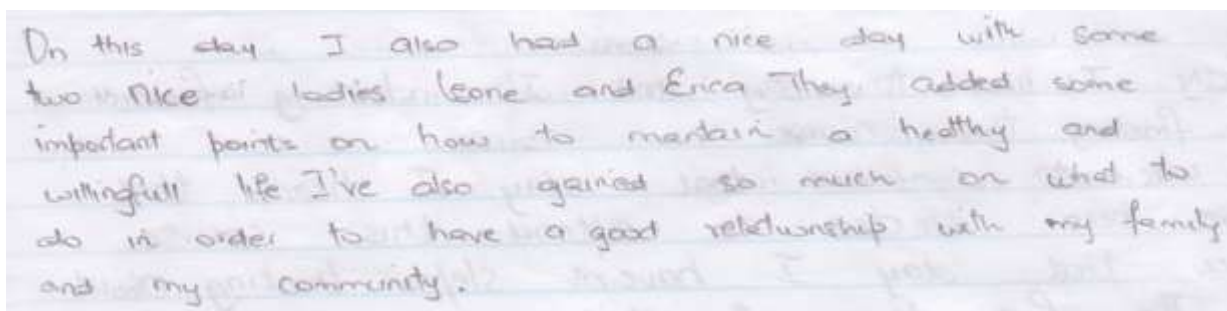 On this day I also had a nice day with some
two nice ladies leone and Erica They added some
important points on how to mantain a healthy and
willingfull life I've also gained so much on what to
do in order to have a good relationship with my family
and my community.